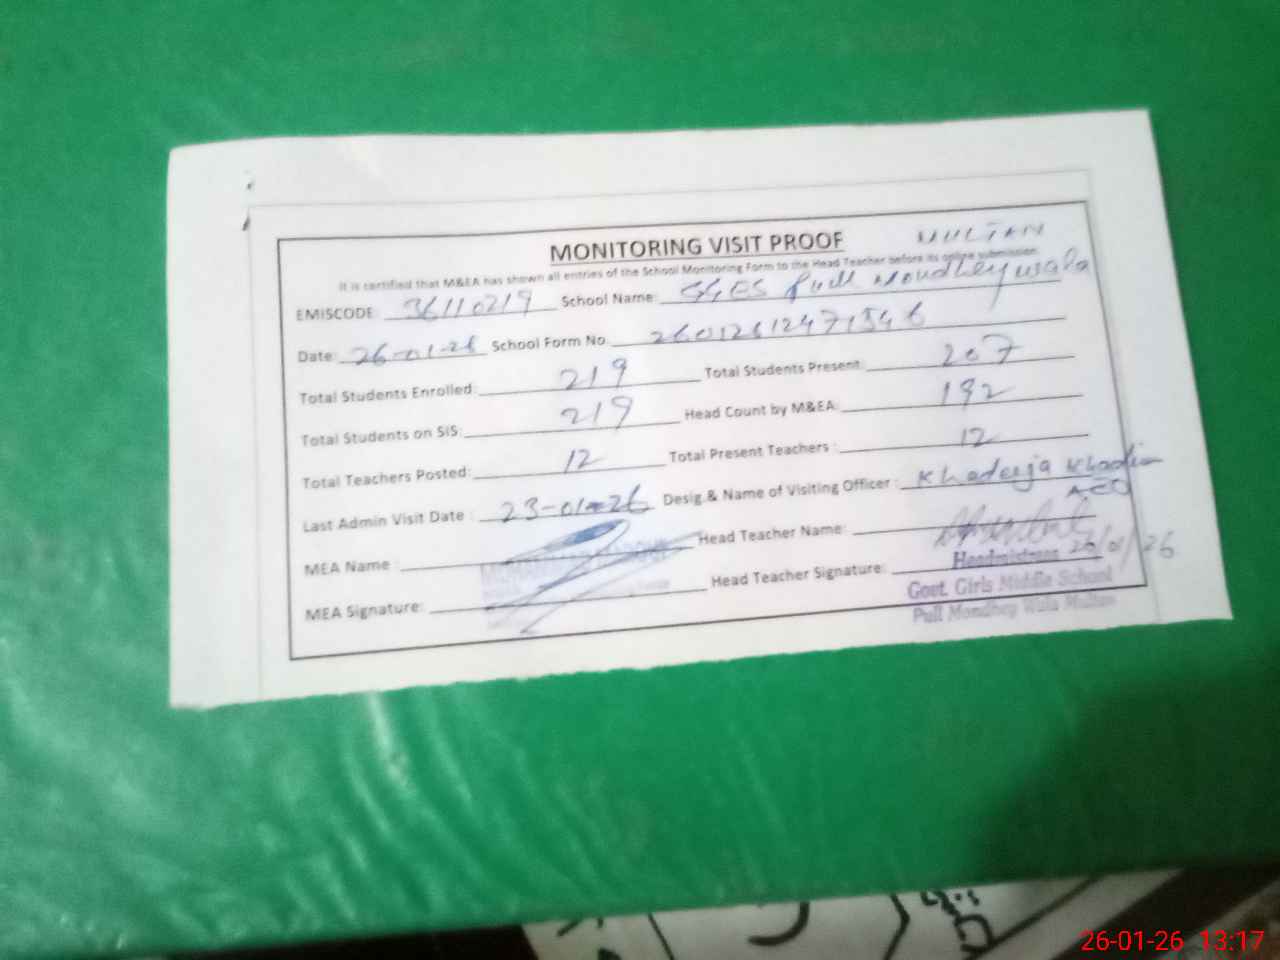 MONITORING VISIT PROOF MULTAN
It is certified that M&EA has shown all entries of the School Monitoring Form to the Head Teacher before its online submission.
EMISCODE: 36110219 School Name: GGES Pull Moudheywala
Date: 26-01-26 School Form No. 26012612471546
Total Students Enrolled: 219 Total Students Present: 207
Total Students on SIS: 219 Head Count by M&EA: 192
Total Teachers Posted: 12 Total Present Teachers : 12
Last Admin Visit Date : 23-01-26 Desig & Name of Visiting Officer : Khadeeja Khadim
AEO
MEA Name : Head Teacher Name:
MEA Signature: Head Teacher Signature: 26/01/26
Headmistress
Govt. Girls Middle School
Pull Mondhey Wala Multan
26-01-26 13:17